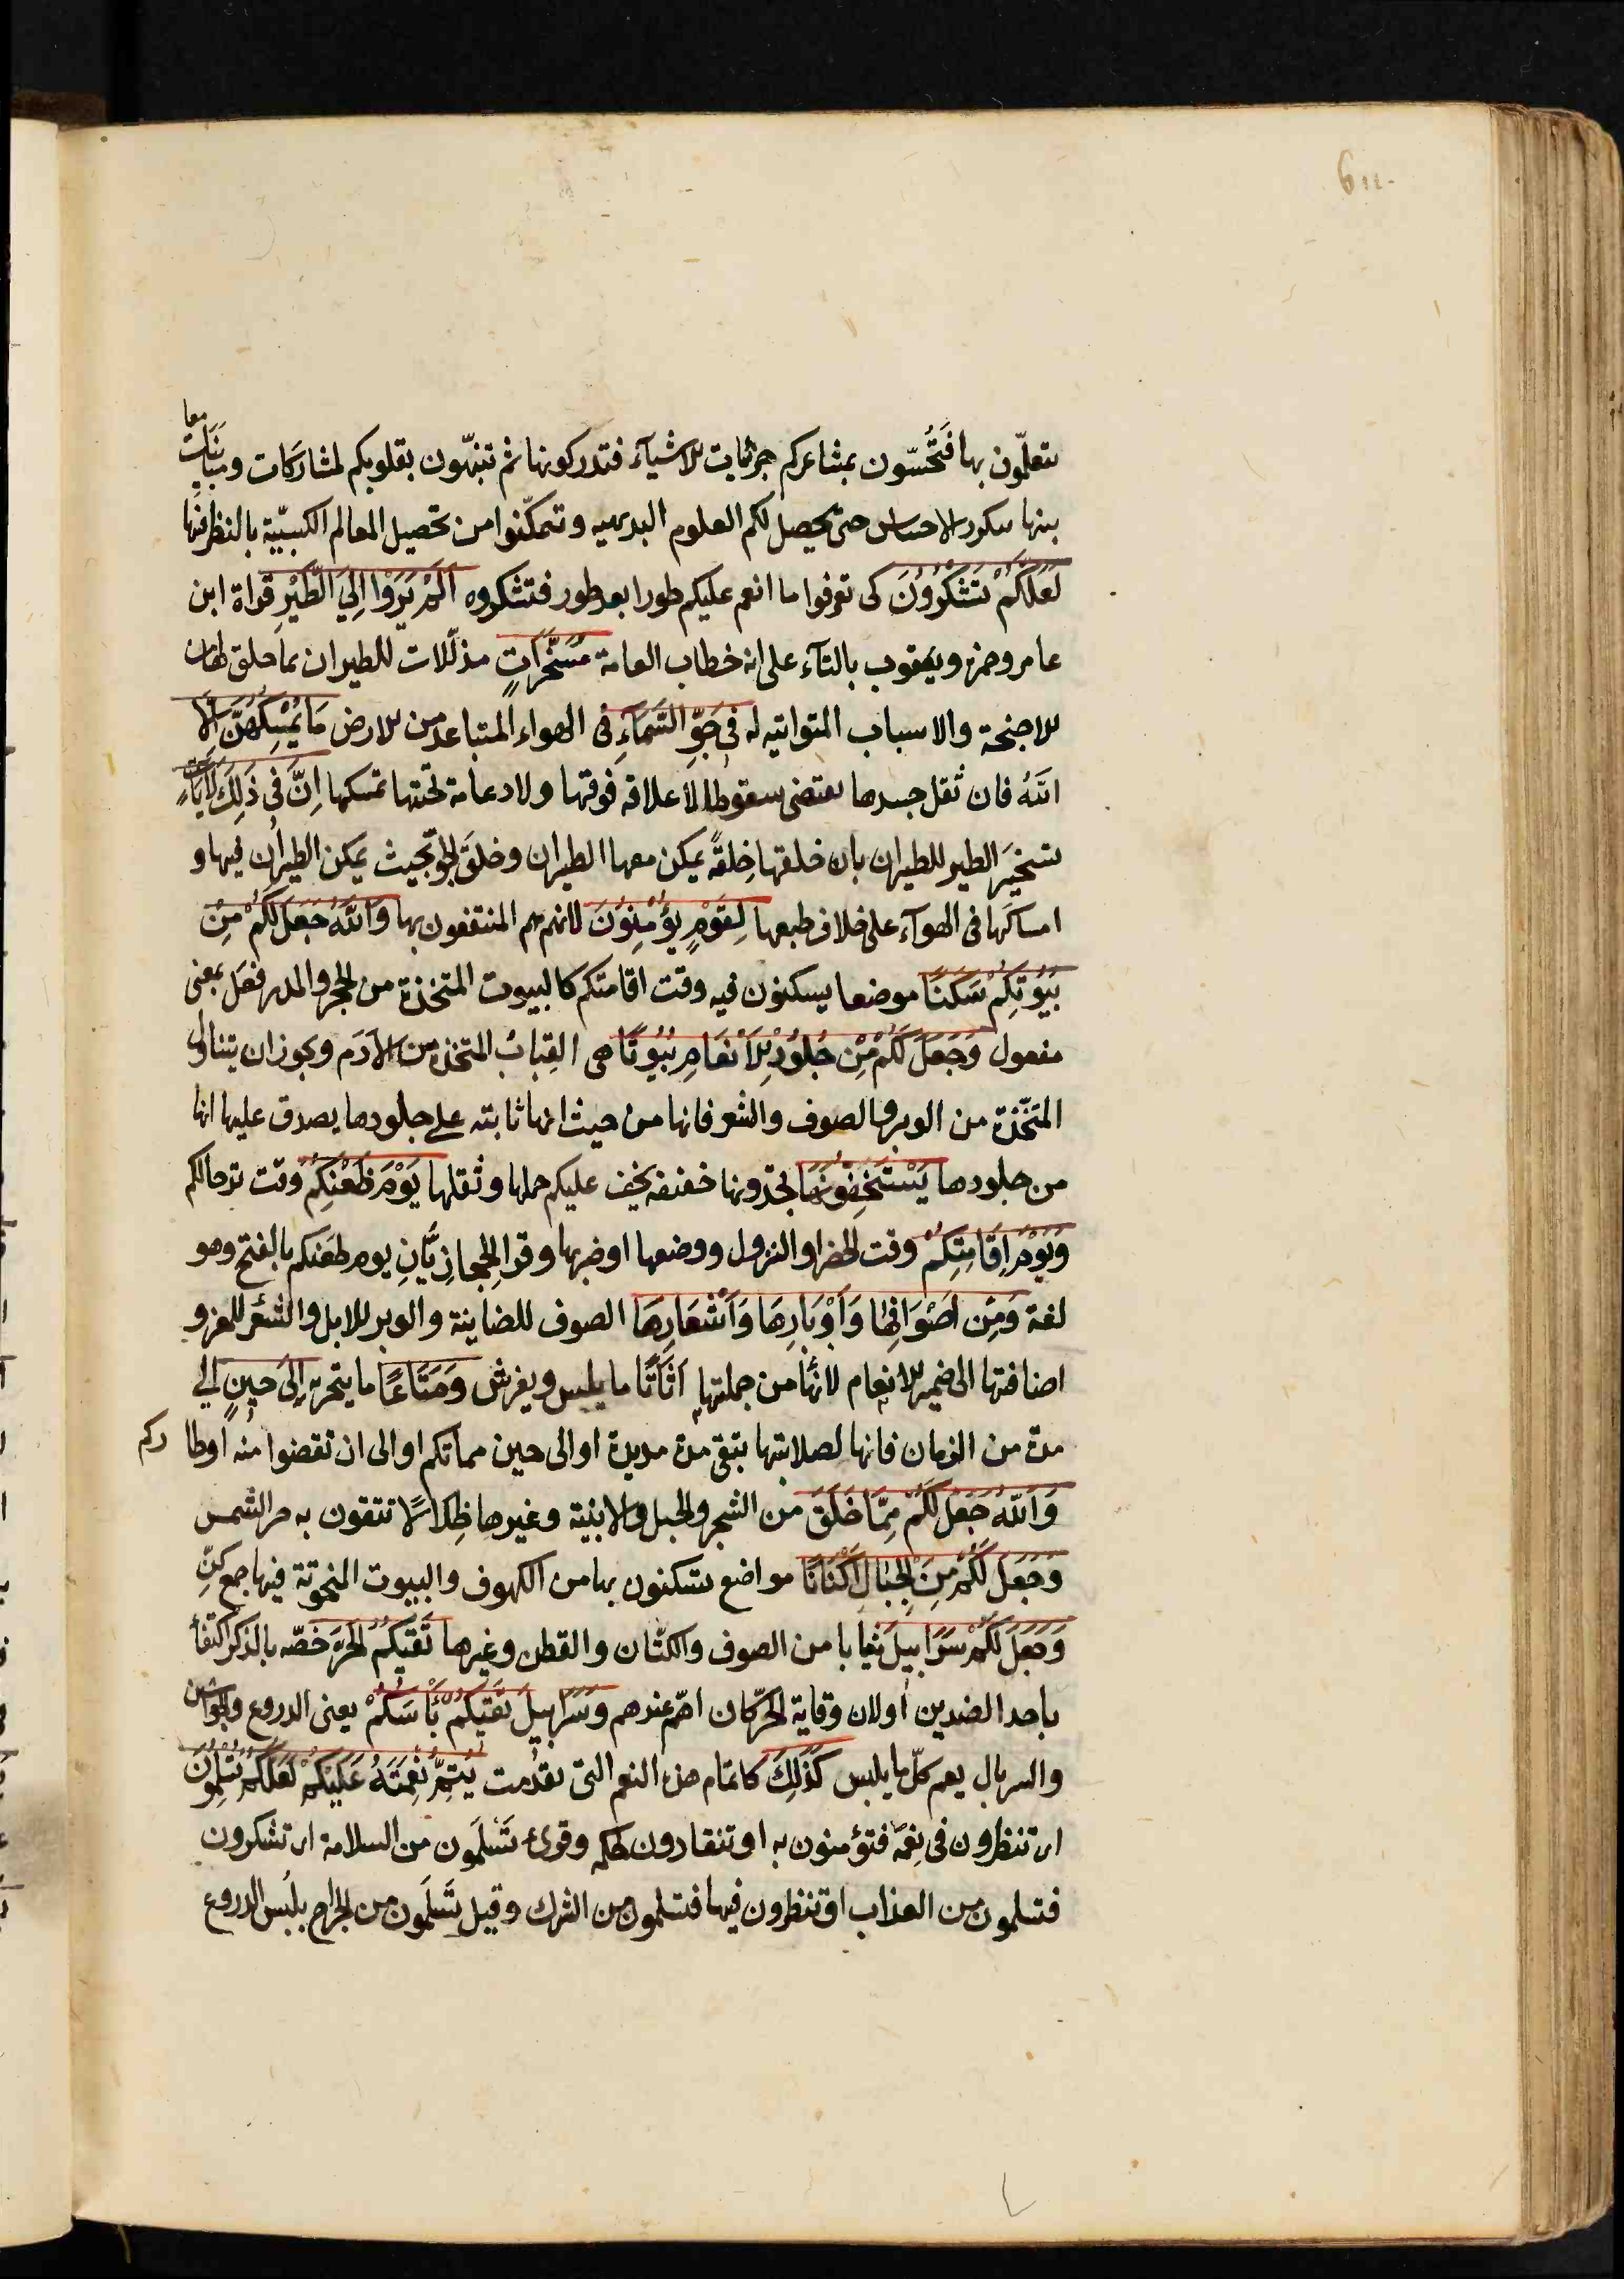 611
تتعلّمون بها فَتُحُسّون بمشاعركم جزئيات الاشيآء فتدركونها ثم تنبّهون بقلوبكم لمشاركات ومباينات معا
بينها بتكرر الاحساس حتى يحصل لكم العلوم البديهيه وتتمكّنوا من تحصيل المعالم الكسبيّة بالنظر فيها
لَعَلَّكُمْ تَشْكُرُونَ كى تعرفوا ما انعم عليكم طورا بعد طور فتشكروه اَلَمْ يَرَوْا اِلَي الطَّيْرِ قراة ابن
عامر وحمزه ويعقوب بالتآء على انه خطاب العامة مُسَخَّرَاتٍ مذلّلات للطيران بما خلق لها من
الاجنحة والاسباب المتواتيه له فى جَوِّ السَّمَآءِ فى الهواء المتباعد من الارض مَا يُمْسِكُهُنَّ اِلَّا
اللّٰهُ فان ثقل جسدها يقتضى سقوطها لا علاقه فوقها ولا دعامة تحتها تمسكها اِنَّ فى ذَلِكَ لَآيَاتٍ
تسخيرَ الطير للطيران بان خلقها خِلقةً يمكن معها الطيران وخلقَ الجوّ بحيث يمكن الطيران فيها و
امساكَها فى الهوآء على خلاف طبعها لِقَوْمٍ يُؤْمِنُونَ لانهم هم المنتفعون بها وَاللّٰهُ جَعَلَ لَكُمْ مِنْ
بُيُوتِكُمْ سَكَنًا موضعا يسكنون فيه وقت اقامتكم كالبيوت المتخذة من الحجر والمدر فعَل بمعنى
مفعول وَجَعَلَ لَكُمْ مِنْ جُلُودِ الْاَنْعَامِ بُيُوتًا هى القِبابُ المتخذة من الاَدَم ويجوز ان يتناول
المتّخذة من الوبر والصوف والشعر فانها من حيث انها ثابته على جلودها يصدق عليها انها
من جلودها يَسْتَخِفُّونَهَا تجدونها خفيفه يخف عليكم حملها وثقلها يَوْمَ ظَعْنِكُمْ وقت ترحالكم
وَيَوْمَ اِقَامَتِكُمْ وقت الحضر او النزول ووضعها او ضربها وقرا الحجازيّانِ يوم ظعَنكم بالفتح وهو
لغة وَمِنْ اَصْوَافِهَا وَاَوْبَارِهَا وَاَشْعَارِهَا الصوف للضاينة والوبر للابل والشعَر للمعز و
اضافتها الى ضمير الانعام لانّها من جملتها اَثَاثًا ما يلبس ويفرش وَمَتَاعًا ما يتجر به اِلَى حِينٍ الي
مدة من الزمان فانها لصلابتها تبقى مدة مديدة او الى حين مماتكم او الى ان تقضوا منه اوطاركم
وَاللّٰهُ جَعَلَ لَكُمْ مِمَّا خَلَقَ من الشجر والجبل والابنية وغيرها ظِلَالًا تتقون به حر الشمس
وَجَعَلَ لَكُمْ مِنَ الْجِبَالِ اَكْنَانًا مواضع تسكنون بها من الكهوف والبيوت المنحوتة فيها جمع كنّ
وَجَعَلَ لَكُمْ سَرَابِيلَ ثيابا من الصوف والكتّان والقطن وغيرها تَقِيكُمُ الْحَرَّ خصّه بالذكر اكتفاءً
باحد الضدين اولان وقاية الحرّ كان اهم عندهم وَسَرَابِيلَ تَقِيكُمْ بَأْسَكُمْ يعنى الدروع والجواشن
والسربال يعم كلّ ما يلبس كَذَلِكَ كاتمام هذه النعم التى تقدمت يُتِمُّ نِعْمَتَهُ عَلَيْكُمْ لَعَلَّكُمْ تُسْلِمُونَ
اى تنظرون فى نِعمَه فتؤمنون به او تنقادون لحكمه وقرئ تَسْلَمُون من السلامة اى تشكرون
فتسلمون من العذاب او تنظرون فيها فتسلمون من الشرك وقيل تَسْلَمون من الجراح بلُبس الدروع